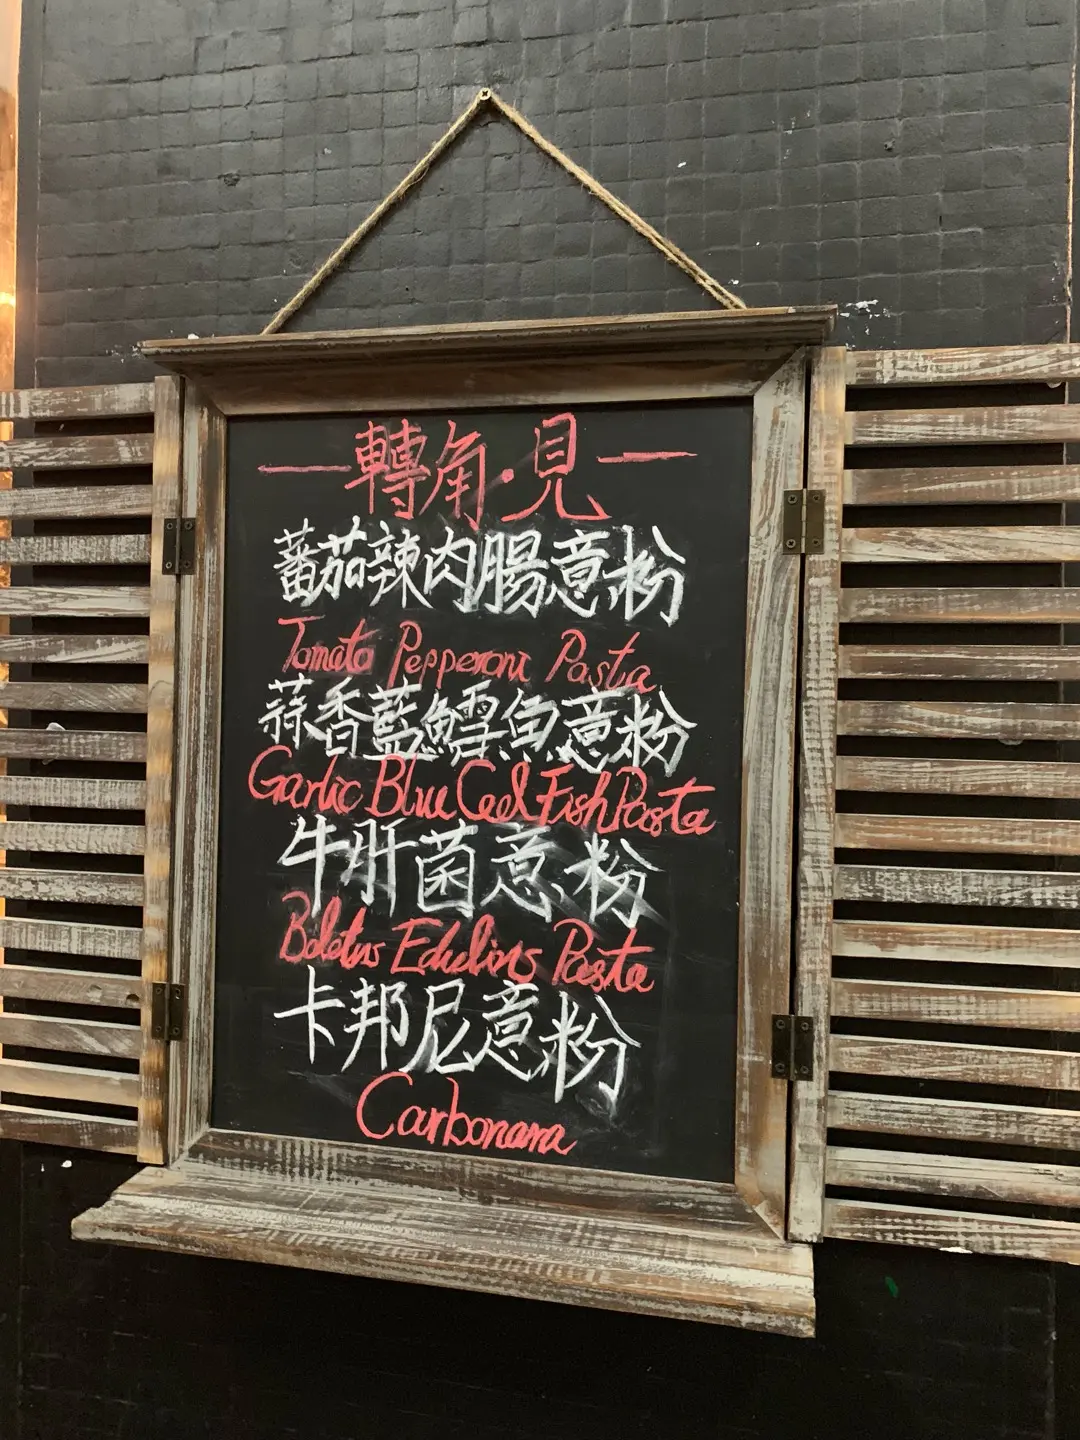 一轉角·見一
蕃茄辣肉腸意粉
Tomato Pepperoni Pasta
蒜香藍鱈魚意粉
Garlic Blue Ceel Fish Pasta
牛肝菌意粉
Boletus Edulins Pasta
卡邦尼意粉
Carbonara